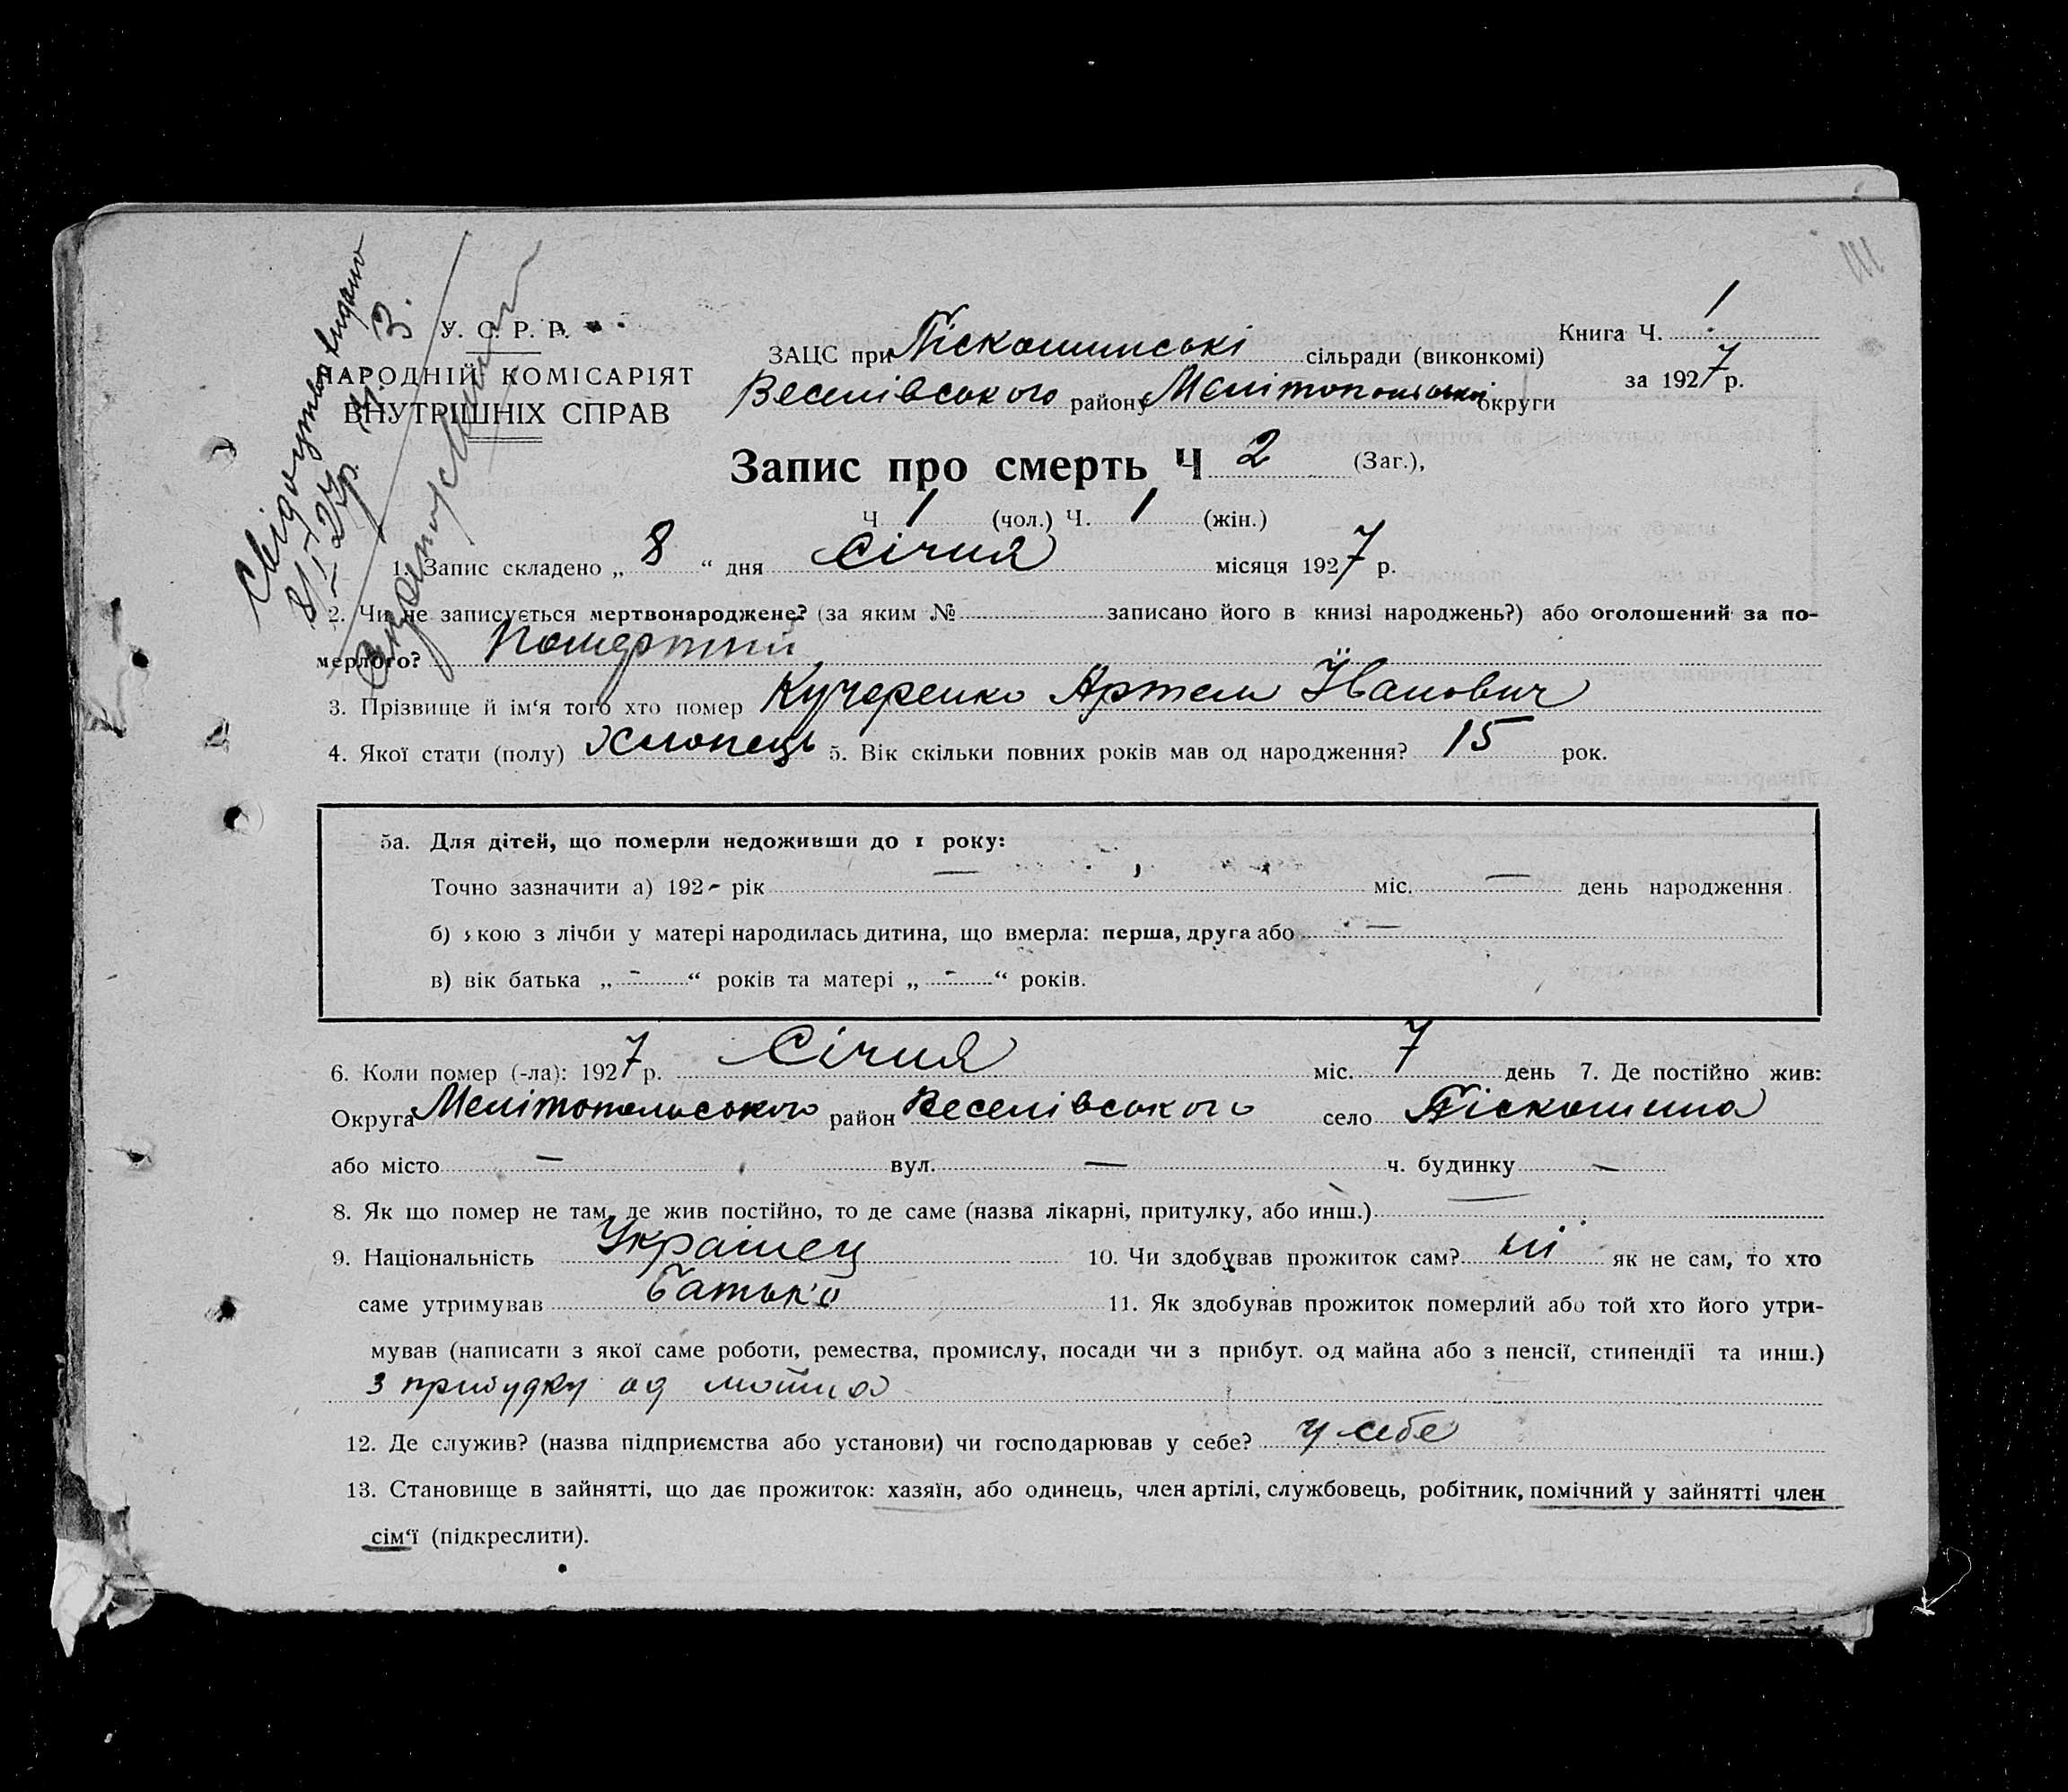 Свідоцтво видано
8/I-27р. Ч. 3.
У. С. Р. Р.
НАРОДНІЙ КОМІСАРІЯТ
ВНУТРІШНІХ СПРАВ
Книга Ч. 1
за 1927 р.
ЗАЦС при Піскошинські сільради (виконкомі)
Веселівського району Мелітопольської округи
Запис про смерть Ч 2 (Заг.),
Ч 1 (чол.) Ч. 1 (жін.)
1. Запис складено „ 8 “ дня Січня місяця 1927 р.
2. Чи не записується мертвонароджене? (за яким № записано його в книзі народжень?) або оголошений за по-
мерлого?
3. Прізвище й ім‘я того хто помер Кучеренко Артем Іванович
4. Якої стати (полу) Хлопець 5. Вік скільки повних років мав од народження? 15 рок.
5а. Для дітей, що померли недоживши до 1 року:
Точно зазначити а) 192- рік — міс. — день народження.
б) якою з лічби у матері народилась дитина, що вмерла: перша, друга або —
в) вік батька „ - “ років та матері „ - “ років.
6. Коли помер (-ла): 1927 р. Січня міс. 7 день 7. Де постійно жив:
Округа Мелітопольського район Веселівського село Піскошина
або місто — вул. — ч. будинку —
8. Як що помер не там, де жив постійно, то де саме (назва лікарні, притулку, або инш.) —
9. Національність Українец 10. Чи здобував прожиток сам? ні як не сам, то хто
саме утримував батько 11. Як здобував прожиток померлий або той хто його утри-
мував (написати з якої саме роботи, ремества, промислу, посади чи з прибут. од майна або з пенсії, стипендії та инш.)
з прибудку од майна
12. Де служив? (назва підприємства або установи) чи господарював у себе? у себе
13. Становище в зайнятті, що дає прожиток: хазяїн, або одинець, член артілі, службовець, робітник, помічний у зайнятті член
сім‘ї (підкреслити).